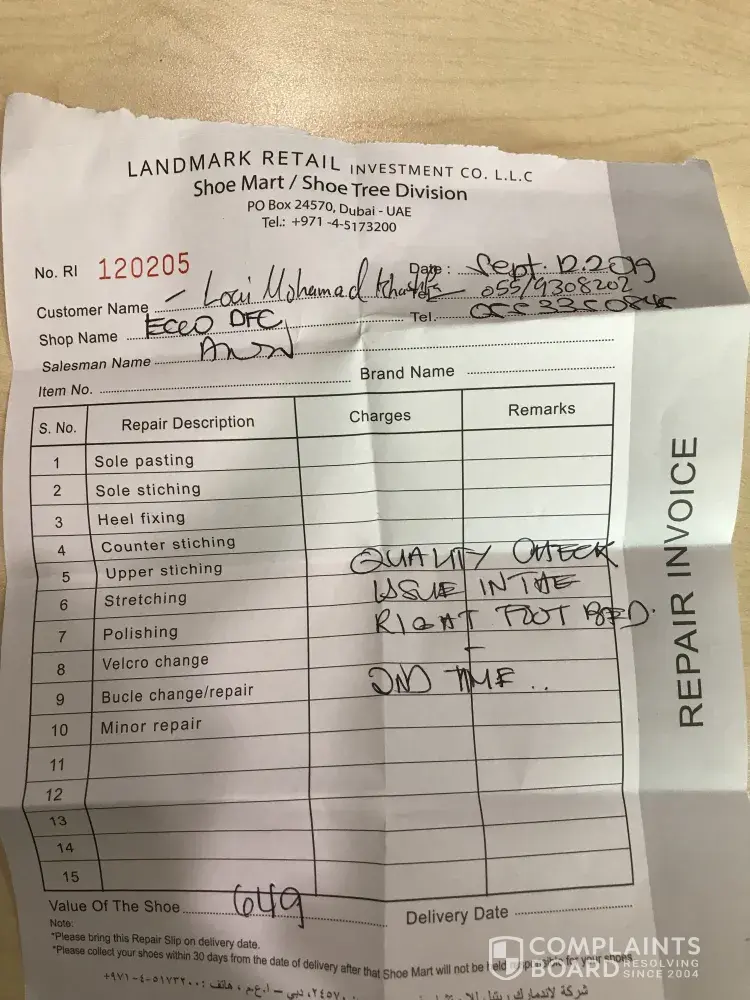 LANDMARK RETAIL INVESTMENT CO. L.L.C
Shoe Mart / Shoe Tree Division
PO Box 24570, Dubai - UAE
Tel.: +971 -4-5173200
No. RI 120205
Date : Sept. 12.2019
Customer Name Loai Mohamad 055/9308202
Shop Name ECCO DFC Tel.
Salesman Name
Item No. Brand Name
S. No. Repair Description Charges Remarks
1 Sole pasting
2 Sole stiching
3 Heel fixing
4 Counter stiching
5 Upper stiching
6 Stretching
7 Polishing
8 Velcro change
9 Bucle change/repair
10 Minor repair
11
12
13
14
15
QUALITY CHECK
ISSUE IN THE
RIGHT FOOT BED.
2ND TIME ..
REPAIR INVOICE
Value Of The Shoe 649 Delivery Date
Note:
*Please bring this Repair Slip on delivery date.
*Please collect your shoes within 30 days from the date of delivery after that Shoe Mart will not be held responsible for your shoes
COMPLAINTS
BOARD RESOLVING
SINCE 2004